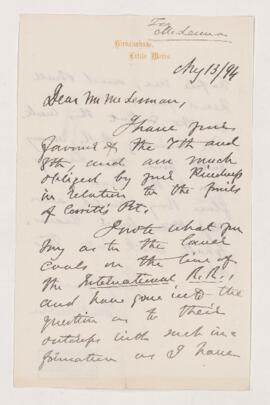 McLennan
Birkenshaw,
Little Metis.
Aug 13/94
Dear Mr McLennan,
I have your
favours of the 7th and
8th, and am much
obliged by your kindness
in relation to the
of
I note what you
say as to the
Coals on the line of
the International R.R.,
and have gone into the
question as to their
outcrops with such in-
formation as I have